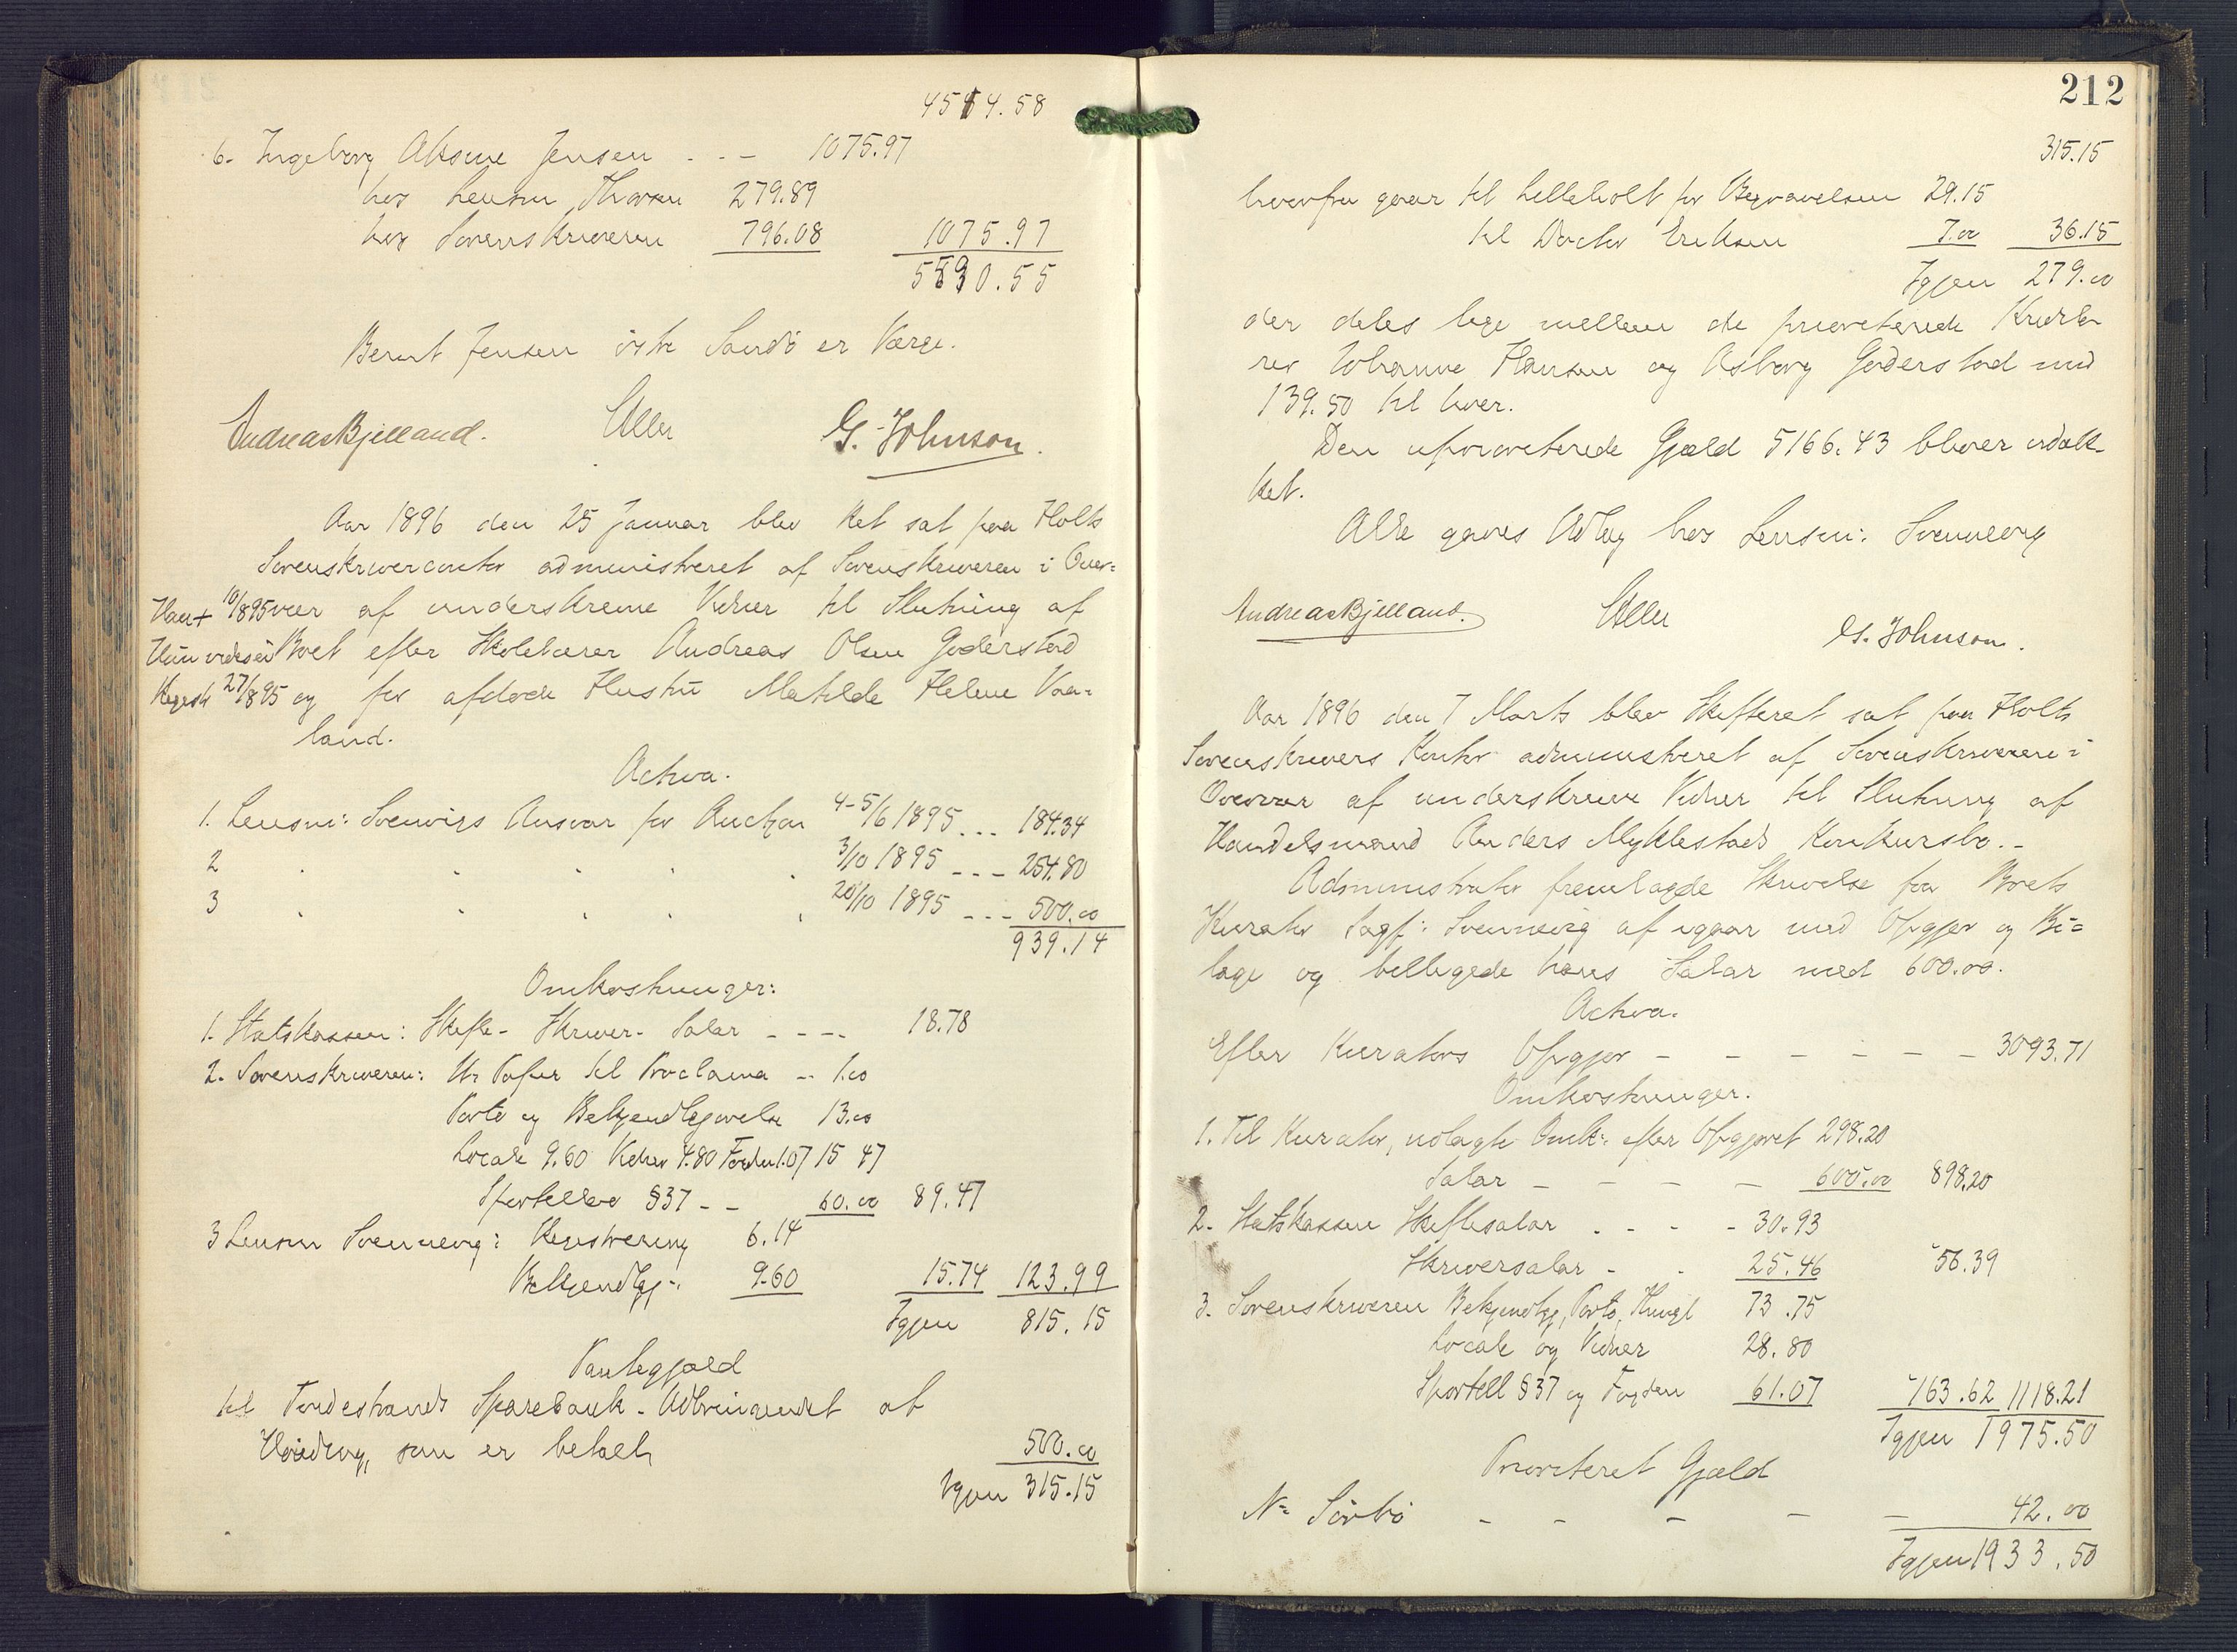 4514.58
6. Ingeborg Aksine Jensen - - - 1075.97
hos Lensm Thorsen 279.89
hos Sorenskriveren 796.08 1075.97
5590.55
Bernt Jensen östre Sandö er Værge.
Andreas Bjelland. G. Johnson.
Aar 1896 den 25 Januar blev Ret sat paa Holts
Sorenskrivercontor administreret af Sorenskriveren i Over-
Han + 10/8 95 vær af underskrevne Vidner til Slutning af
Boet efter Skolelærer Andreas Olsen Goderstad
27/8 95 og før afdøde Hustru Matilde Helene Vaa-
land.
Activa.
1. Lensm: Svenvigs Ansvar for Auction 4-5/6 1895 ... 184.34
2 " " " " " 3/10 1895 --- 254.80
3 " " " " " 20/10 1895 --- 500.00
939.14
Omkostninger:
1. Statskassen: Skifte- Skriver- Salar - - - - 18.78
2. Sorenskriveren: St. Papir til Proclama - 1.00
Porto og Bekjendtgjørelse 13.00
Locale 9.60 Vidner 4.80 1.07 15 47
Sportellov §37 - - 60.00 89.47
3 Lensm Svennevig: Registrering 6.14
Bekjendtgj-. 9.60 15.74 123.99
Igjen 815.15
Pantegjæld
til Tvedestrands Sparebank - Udbringendet af
som er betalt 500.00
Igjen 315.15
212
315.15
hvorfra gaar til Lilleholt for Begravelsen 29.15
til Doctor Eriksen 7.00 36.15
Igjen 279.00
der deles lige mellem de prioriterede Kredito-
rer Johanne Hansen og Asborg Goderstad med
139.50 til hver.
Den uprioriterede Gjæld 5166.43 bliver udæk-
ket.
Alle gaves Udlæg hos Lensm: Svennevig
Andreas Bjelland. G. Johnson.
Aar 1896 den 7 Marts blev Skifteret sat paa Holts
Sorenskrivers Kontor administreret af Sorenskriveren i
Overvær af underskrevne Vidner til Slutning af
Handelsmand Anders Myklestads Konkursbo.-
Administrator fremlagde Skrivelse fra Boets
Kurator Sagf: Svennevig af igaar med Opgjør og Bi-
lage og billigede hans Salar med 600.00.
Activa.
Efter Kurators Opgjør - - - - - - 3093.71
Omkostninger.
1. Til Kurator, udlagte Omk: efter Opgjøret 298.20
Salar - - - - 600.00 898.20
2. Statskassen Skiftesalar - - - - 30.93
Skriversalar - - 25.46 56.39
3. Sorenskriveren Bekjendtgj, Porto, 73.75
Locale og Vidner 28.80
Sportell §37 og Fogden 61.07 163.62 1118.21
Igjen 1975.50
Prioriteret Gjæld
N= Sörbö - - - - - 42.00
Igjen 1933.50